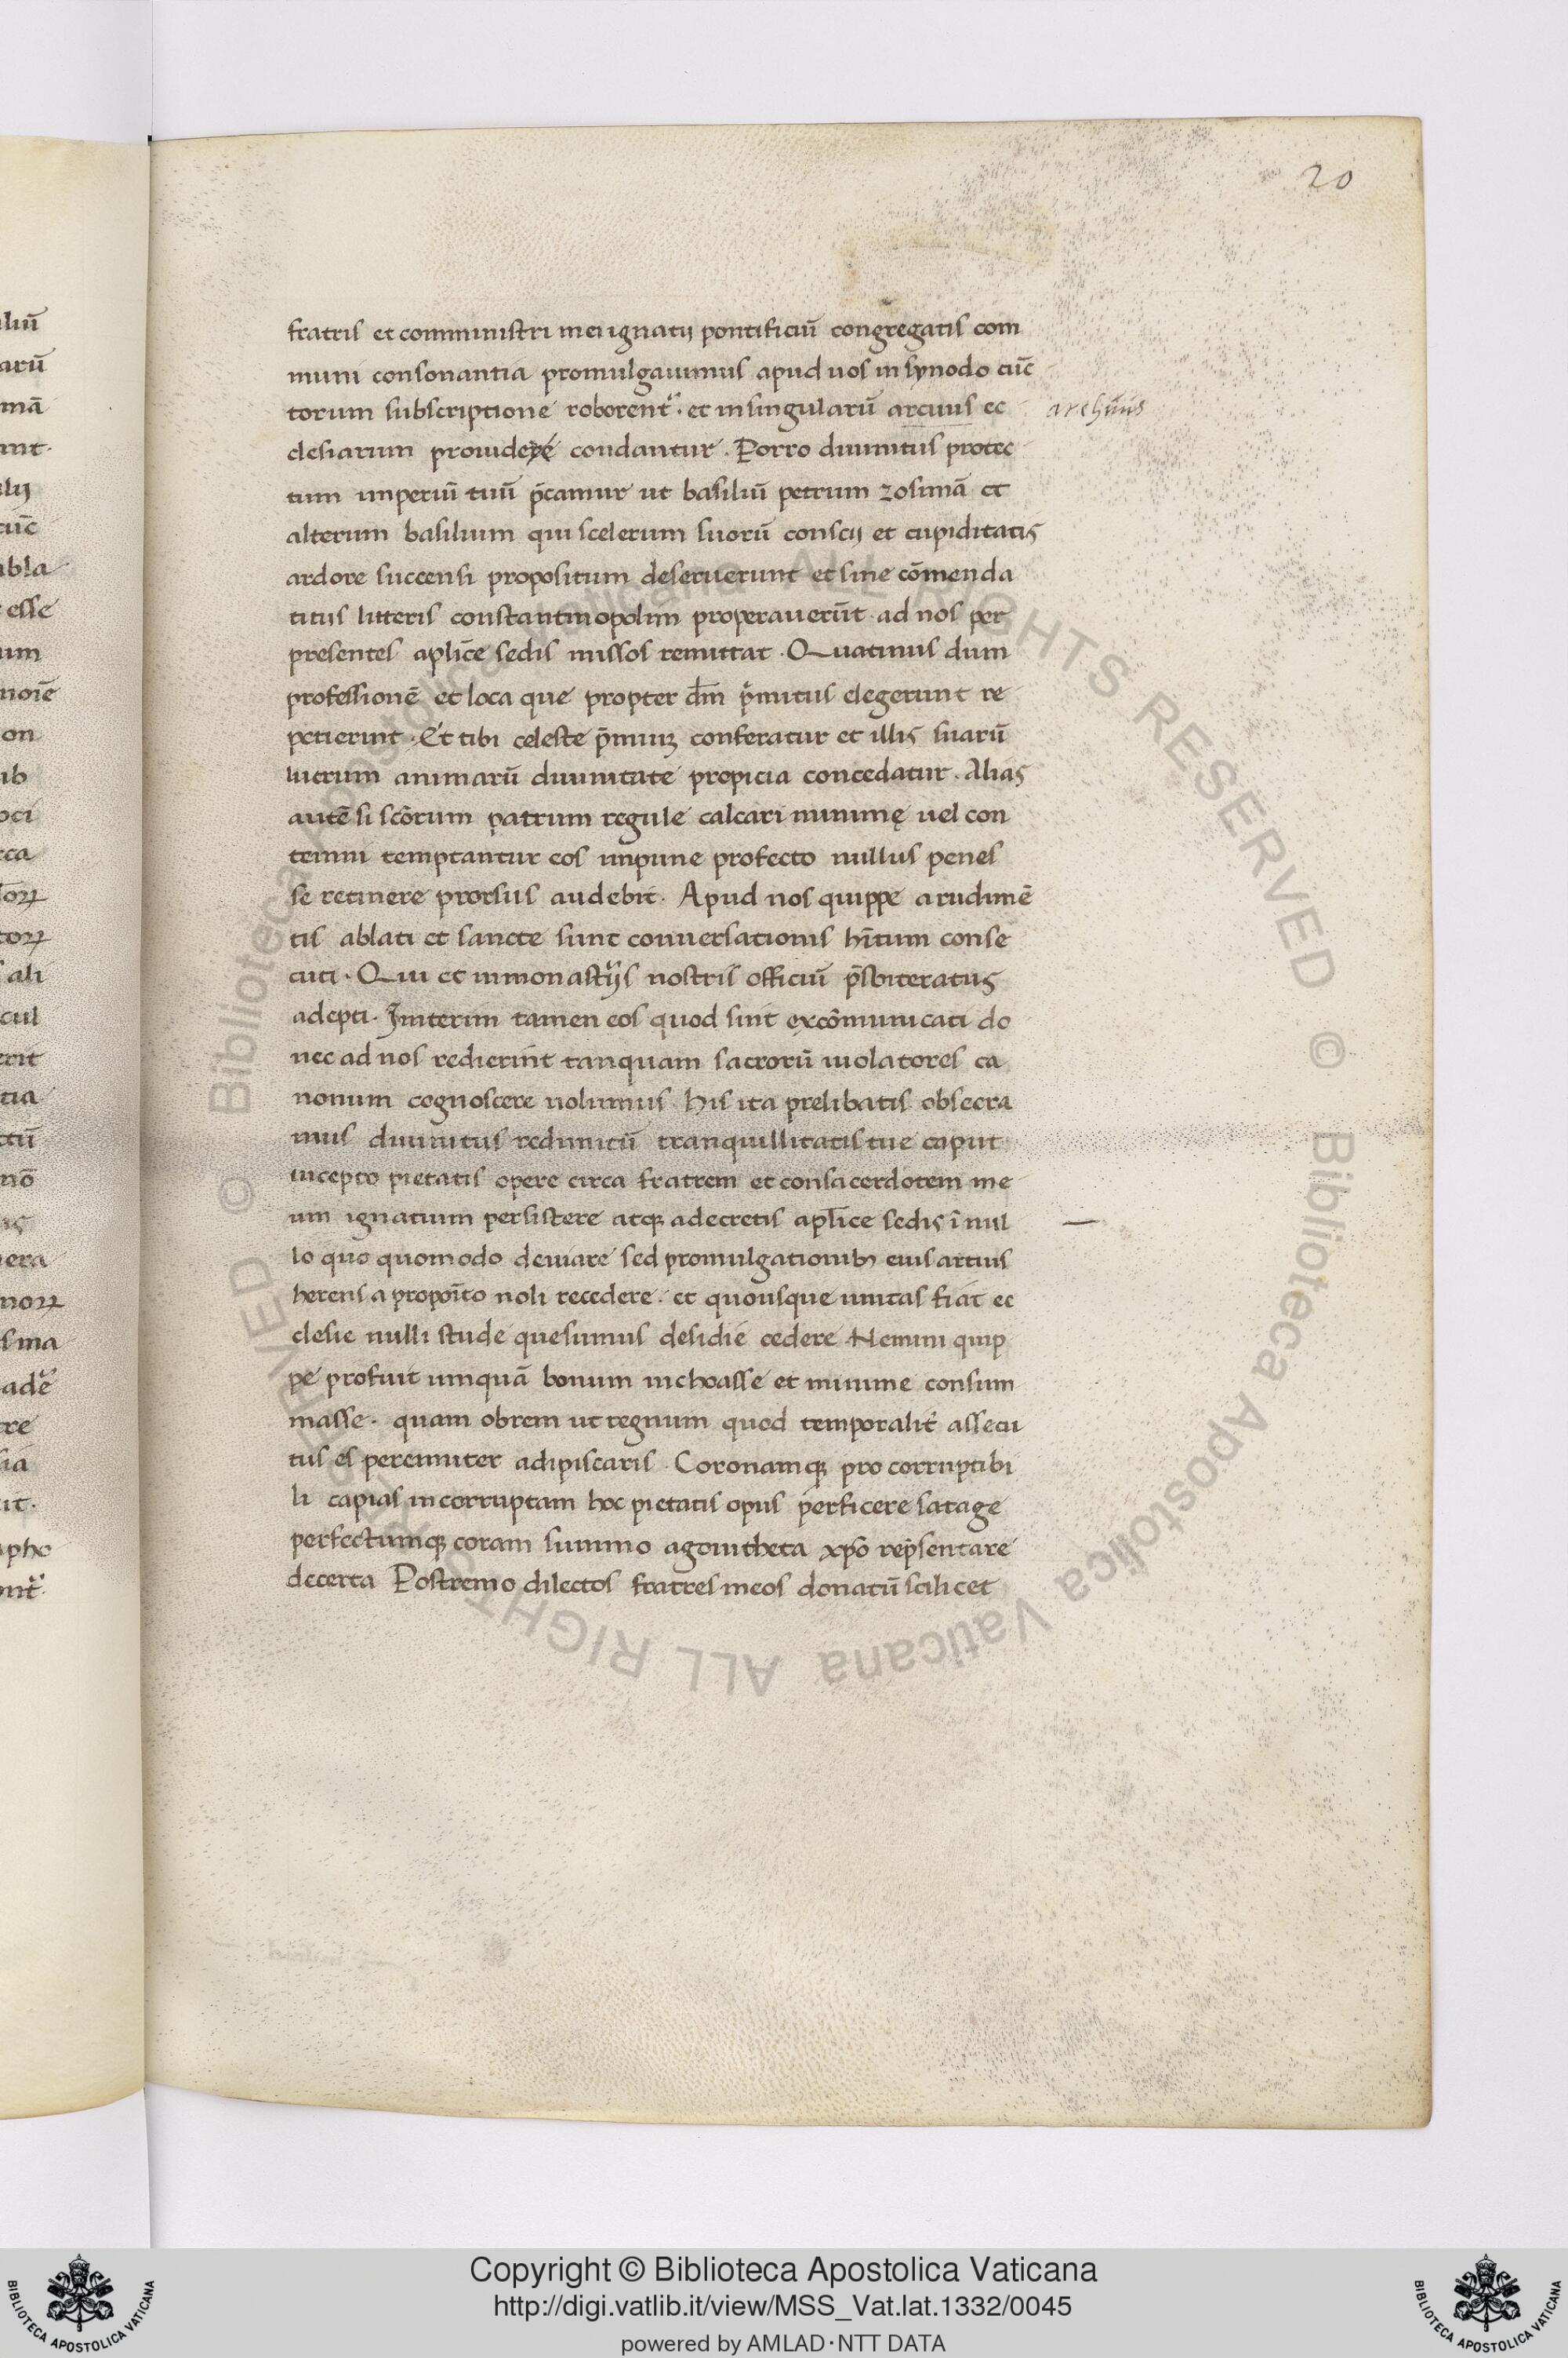 20
fratris et comministri mei ignatij pontificiū congregatis com
muni consonantia promulgauimus apud uos in synodo cūc
torum subscriptione roborent᷑. et in singularū arcuus ec
archiuis
clesiarum prouidere condantur. Porro diuinitus protec
tum imperiū tuū p̄camur ut basiliū petrum zosimā et
alterum basilium qui scelerum suorū conscij et cupiditatis
ardore succensi propositum deseruerunt et sine cōmenda
titiis litteris constantinopolim properauerūt ad nos per
presentes aplīce sedis missos remittat. Quatinus dum
professionē et loca que propter dm̄ p̄mitus elegerunt re
petierint. Et tibi celeste p̄miuꝫ conferatur et illis suarū
lucrum animarū diuinitate propicia concedatur. Alias
autē si scōrum patrum regule calcari minimę uel con
temni temptantur eos impune profecto nullus penes
se retinere prorsus audebit. Apud nos quippe a rudimē
tis ablati et sancte sunt conuersationis hītum conse
cuti. Qui et in monastījs nostris officiū p̄sbiteratus
adepti. Interim tamen eos quod sint excōmunicati do
nec ad nos redierint tanquam sacrorū uiolatores ca
nonum cognoscere uolumus his ita prelibatis obsecra
mus diuinitus redimitū tranquillitatis tue caput
incepto pietatis opere circa fratrem et consacerdotem me
um ignatium persistere atqꝫ a decretis aplice sedis ī nul
lo quo quomodo deuiare sed promulgationibꝫ eius artius
herens a propoīto noli recedere. et quousque unitas fiat ec
clesie nulli stude quesumus desidie cedere Nemini quip
pe profuit umquā bonum inchoasse et minime consum
masse. quam obrem ut regnum quod temporalit᷑ assecu
tus es perenniter adipiscaris. Coronamqꝫ pro corruptibi
li capias incorruptam hoc pietatis opus perficere satage
perfectumqꝫ coram summo agonitheta xp̄o rep̄sentare
decerta Postremo dilectos fratres meos donatū scilicet
Copyright © Biblioteca Apostolica Vaticana
http://digi.vatlib.it/view/MSS_Vat.lat.1332/0045
powered by AMLAD·NTT DATA